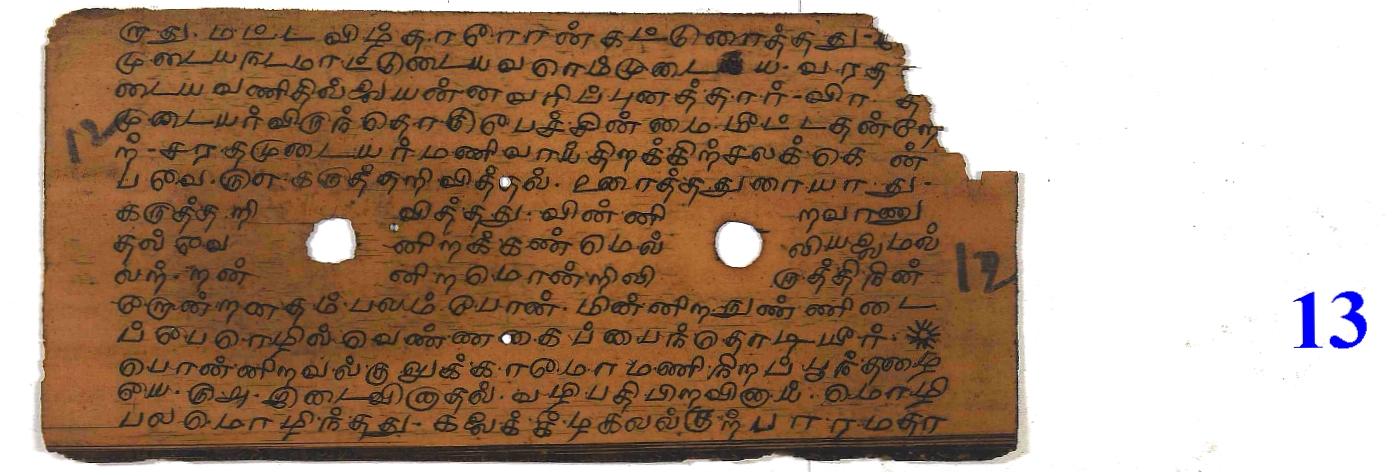 ருது. மட்டவிழ்தாரொான்கட்டுரைத்தது-
முடையநடமாட்டுடையவரெம்முடை ய. வரத
டையவணிதில்லையன்னவரிப்புனத்தார்-விர த
முடையர்விருந்தொடுபெச்சின்மைமீட்டதன்றெ
ற்-சரதமுடையர்மணிவாய்திறக்கிற்சலக்கெ ன்
பவெ.ருஎ கருத்தறிவித்தல். உரைத்ததுரையாது-
கருத்தறி வித்தது. வின்னி றவாணு
தல் வெ னிறக்கண்மெல் லியலைமல்
லற்.றன் னிறமொன்றிலி ருத்திநின்
றொன்றனதம்பலம்பொன். மின்னிறநுண்ணிடை
ப்பெரெழில்வெண்ணகைப்பைந்தொடியீர்.
பொன்னிறவல்குலுக்காமொமாமணிநிறப்பூந்தழை
யெ.ருஅ.இடைவினாதல். வழிபதிபிறவினாய். மொழி
பலமொழிந்தது-கலைக்கீழகலல்குற்பாரமதார
12
12
13